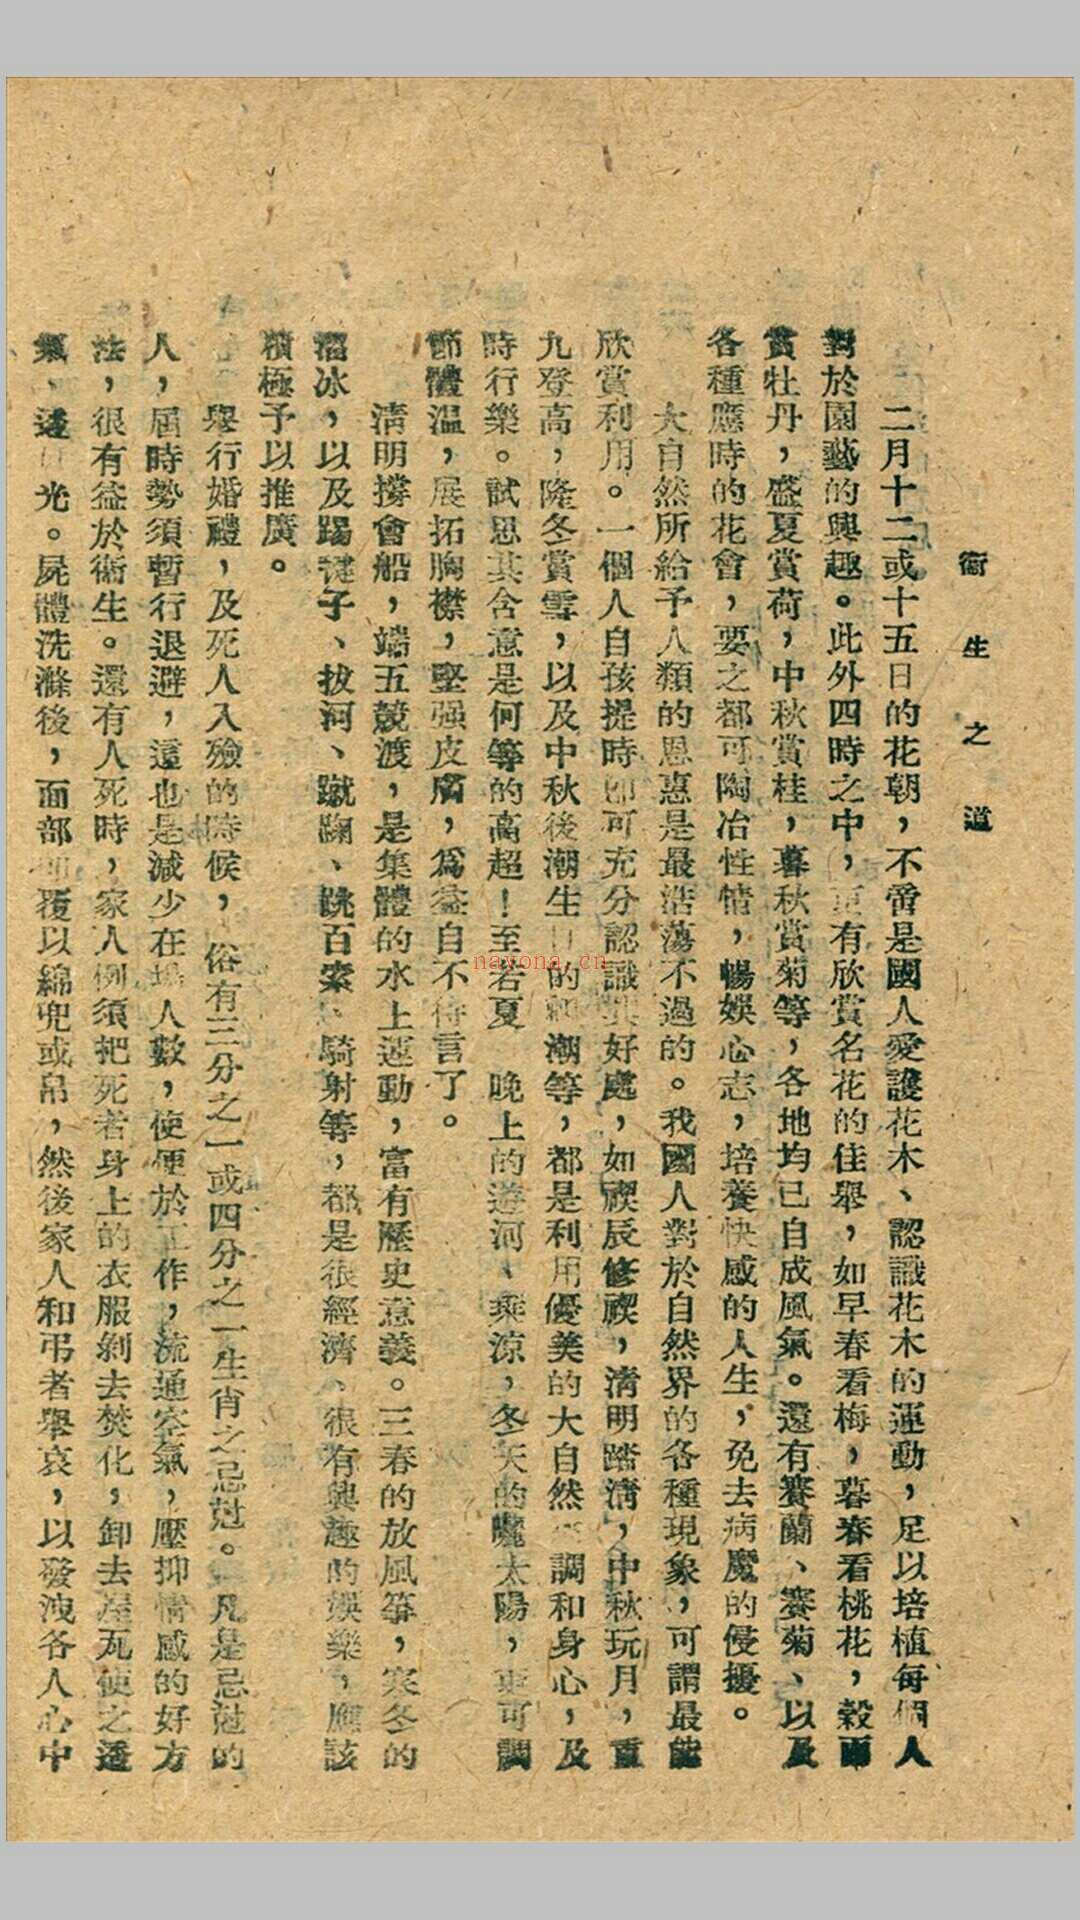 衞生之道
二月十二或十五日的花朝，不啻是國人愛護花木、認識花木的運動，足以培植每個人
對於園藝的興趣。此外四時之中，更有欣賞名花的佳舉，如早春看梅，暮春看桃花，穀雨
賞牡丹，盛夏賞荷，中秋賞桂，暮秋賞菊等，各地均已自成風氣。還有賽蘭、賽菊、以及
各種應時的花會，要之都可陶冶性情，暢娛心志，培養快感的人生，免去病魔的侵擾。
大自然所給予人類的恩惠是最浩蕩不過的。我國人對於自然界的各種現象，可謂最能
欣賞利用。一個人自孩提時即可充分認識其好處，如禊辰修禊，清明踏淸，中秋玩月，重
九登高，隆冬賞雪，以及中秋後潮生日的觀潮等，都是利用優美的大自然 調和身心，及
時行樂。試思其含意是何等的高超！至若夏 晚上的遊河、乘涼，冬天的曬太陽，更可調
節體溫，展拓胸襟，堅强皮膚，爲益自不待言了。
淸明撐會船，端五競渡，是集體的水上運動，富有歷史意義。三春的放風箏，寒冬的
溜冰，以及踢毽子、拔河、蹴踘、跳百索、騎射等，都是很經濟、很有興趣的娛樂，應該
積極予以推廣。
舉行婚禮，及死人入殮的時候，俗有三分之一或四分之一生肖之忌尅。凡是忌尅的
人，屆時勢須暫行退避，這也是減少在場人數，使便於工作，流通空氣，壓抑情感的好方
法，很有益於衞生。還有人死時，家人例須把死者身上的衣服剝去焚化，卸去屋瓦使之透
氣、透日光。屍體洗滌後，面部即覆以綿兜或帛，然後家人和弔者舉哀，以發洩各人心中
nayona.cn